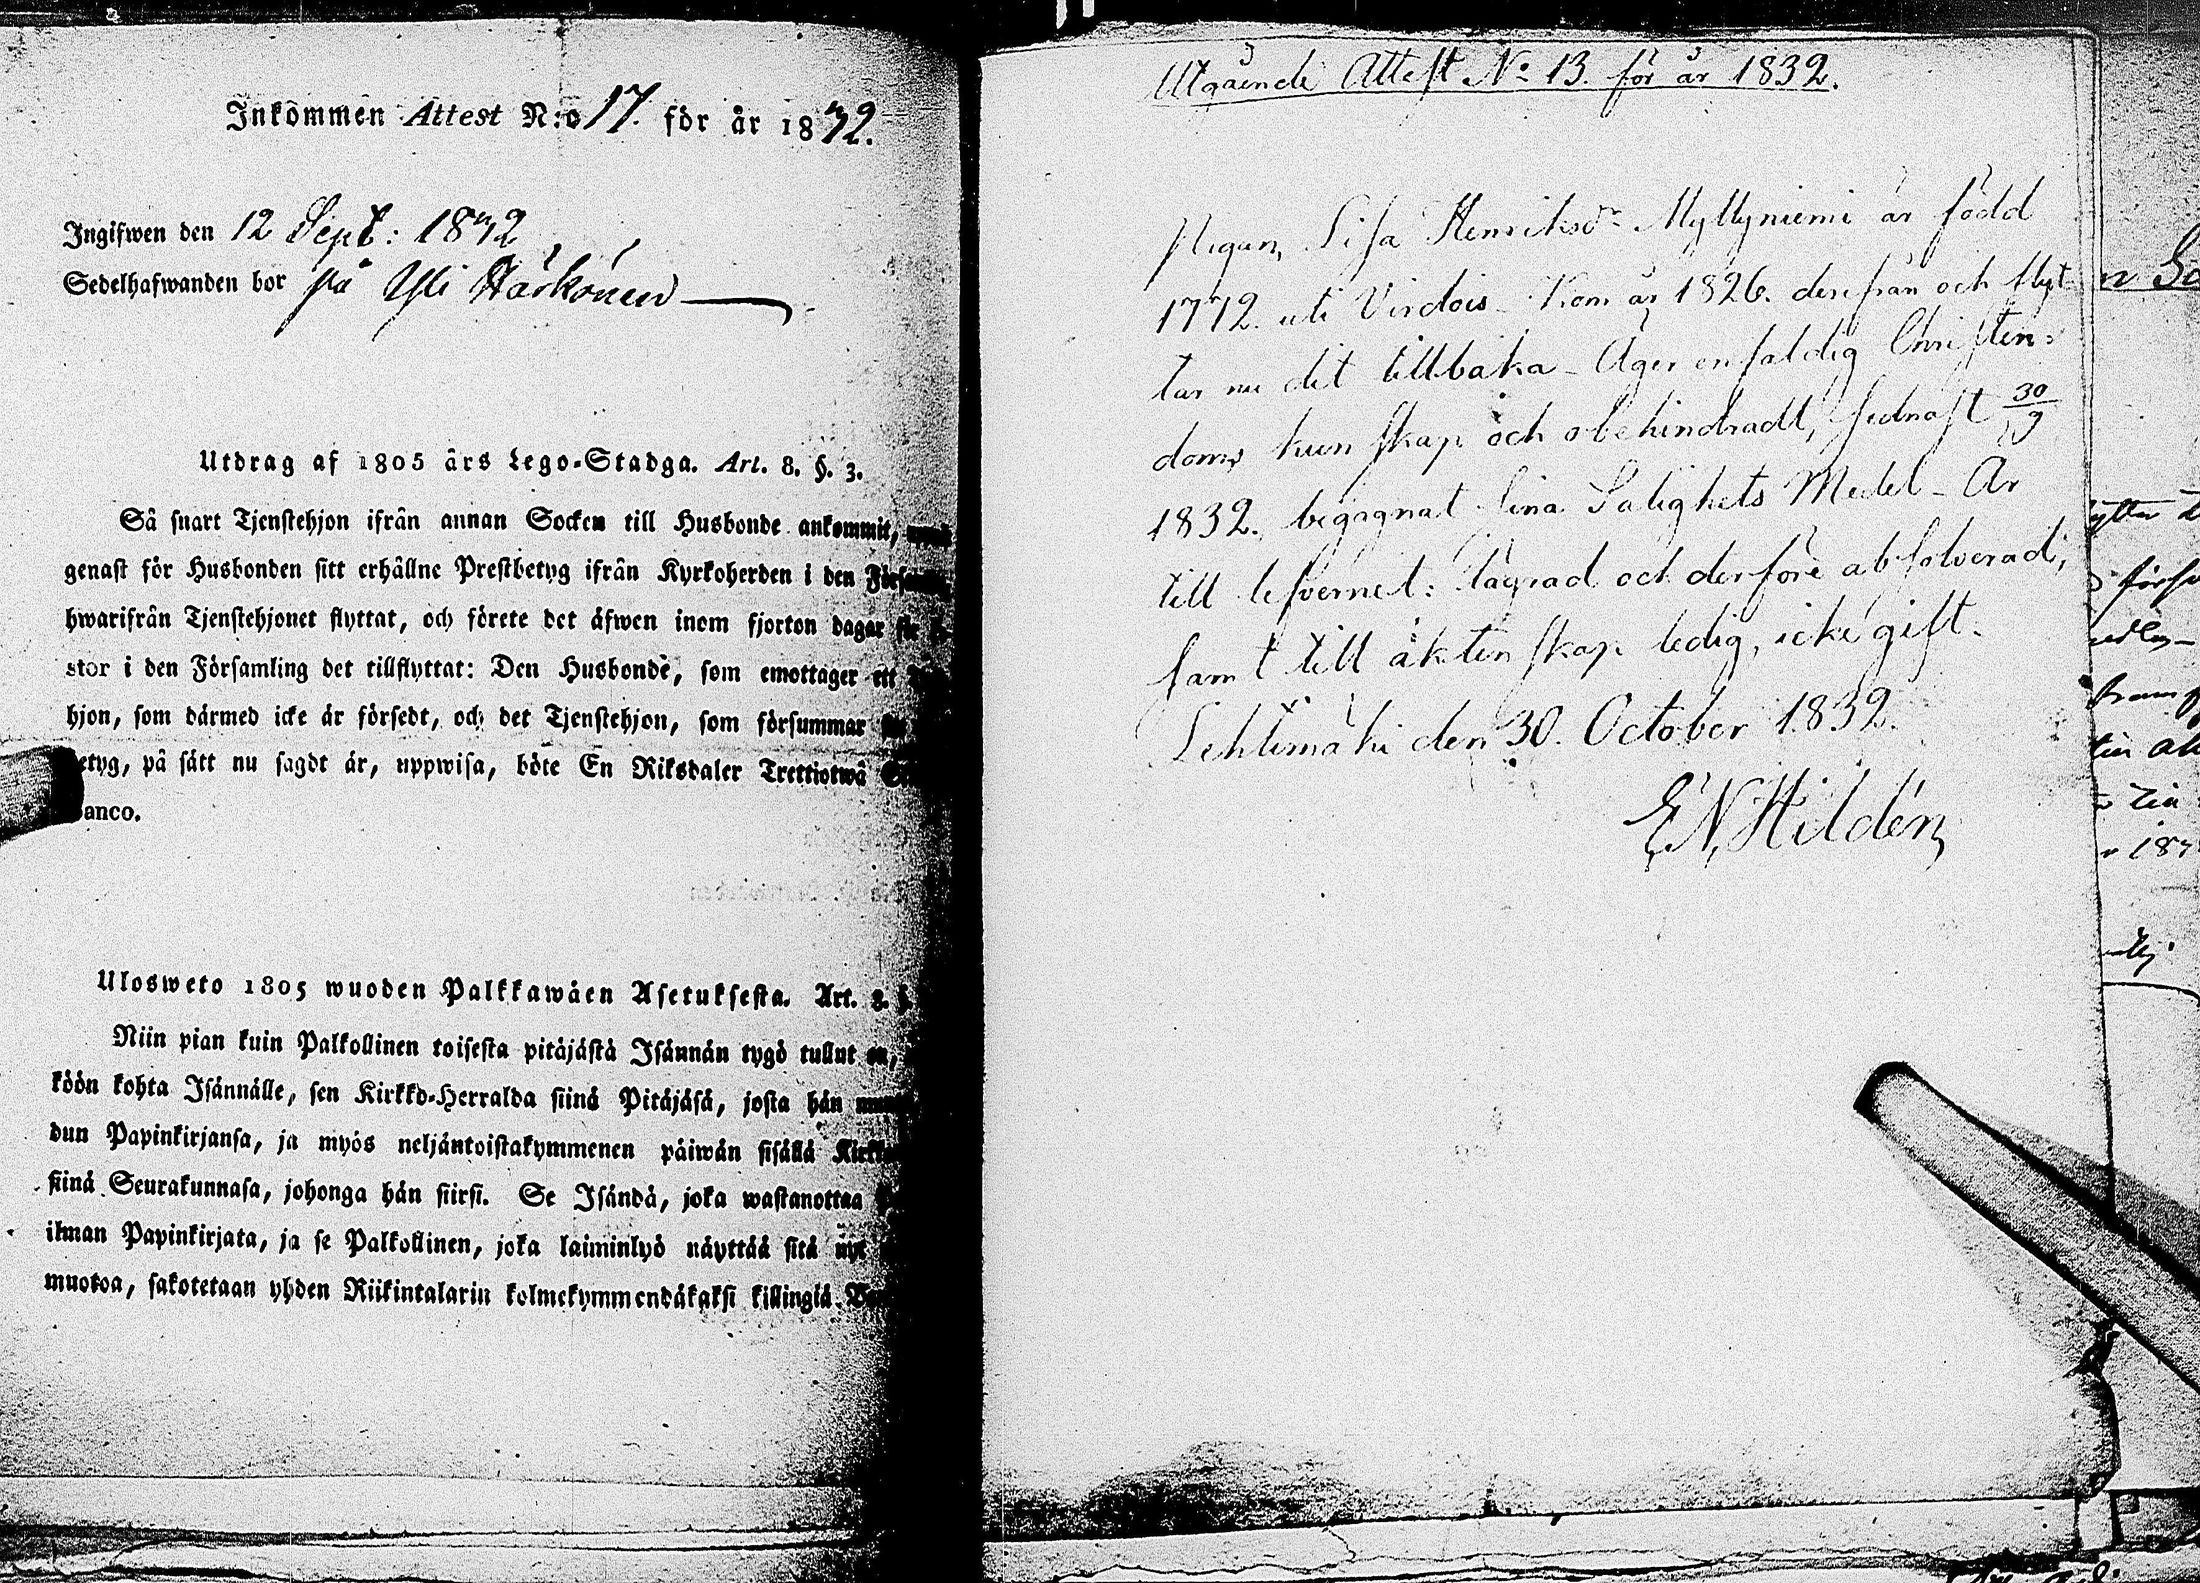 Inkommen Attest N:o 17. för år 1832.
Ingifwen den 12 Sept: 1832
Sedelhafwanden bor på Yli Härkönen
Utdrag af 1805 års Lego-Stadga. Art. 8. §. 3.
Så snart Tjenstehjon ifrån annan Socken till Husbonde ankommit,
genast för Husbonden sitt erhållne Prestbetyg ifrån Kyrkoherden i den
hwarifrån Tjenstehjonet flyttat, och förete det åfwen inom fjorton dagar
stor i den Församling det tillflyttat: Den Husbonde, som emottager ett
hjon, som dårmed icke år försedt, och det Tjenstehjon, som försummar
etyg, på sått nu sagdt år, uppwisa, böte En Riksdaler Trettiotwå
anco.
Ulosweto 1805 wuoden Palkkawåen Asetuksesta. Art. 8. §.
Niin pian kuin Palkollinen toisesta pitåjåstå Isånnån tygö tullut on,
köön kohta Isånnålle, sen Kirkko-Herralda siinå Pitåjåså, josta hån
dun Papinkirjansa, ja myös neljåntoistakymmenen påiwån sisållå
siinå Seurakunnasa, johonga hån siirsi. Se Isåndå, joka wastanottaa
ilman Papinkirjata, ja se Palkollinen, joka laiminlyö nåyttåå sitå nyt
muotoa, sakotetaan yhden Riikintalarin kolmekymmendåkaksi killingiå
Utgående Attest No 13. för år 1832.
Pigan, Lisa Henriksdr Myllyniemi är född
1772. uti Virdois. Kom år 1826. derifrån och flyt-
tar nu dit tillbaka - Äger enfaldig Christen-
doms kunskap och obehindradt, sednast 30/9
1832. begagnat sina Salighets Medel - Är
till lefvernet: lägrad och derföre absolverad,
samt till äktenskap ledig, icke gift.
Lehtimäki den 30. October 1832.
E N Hildén